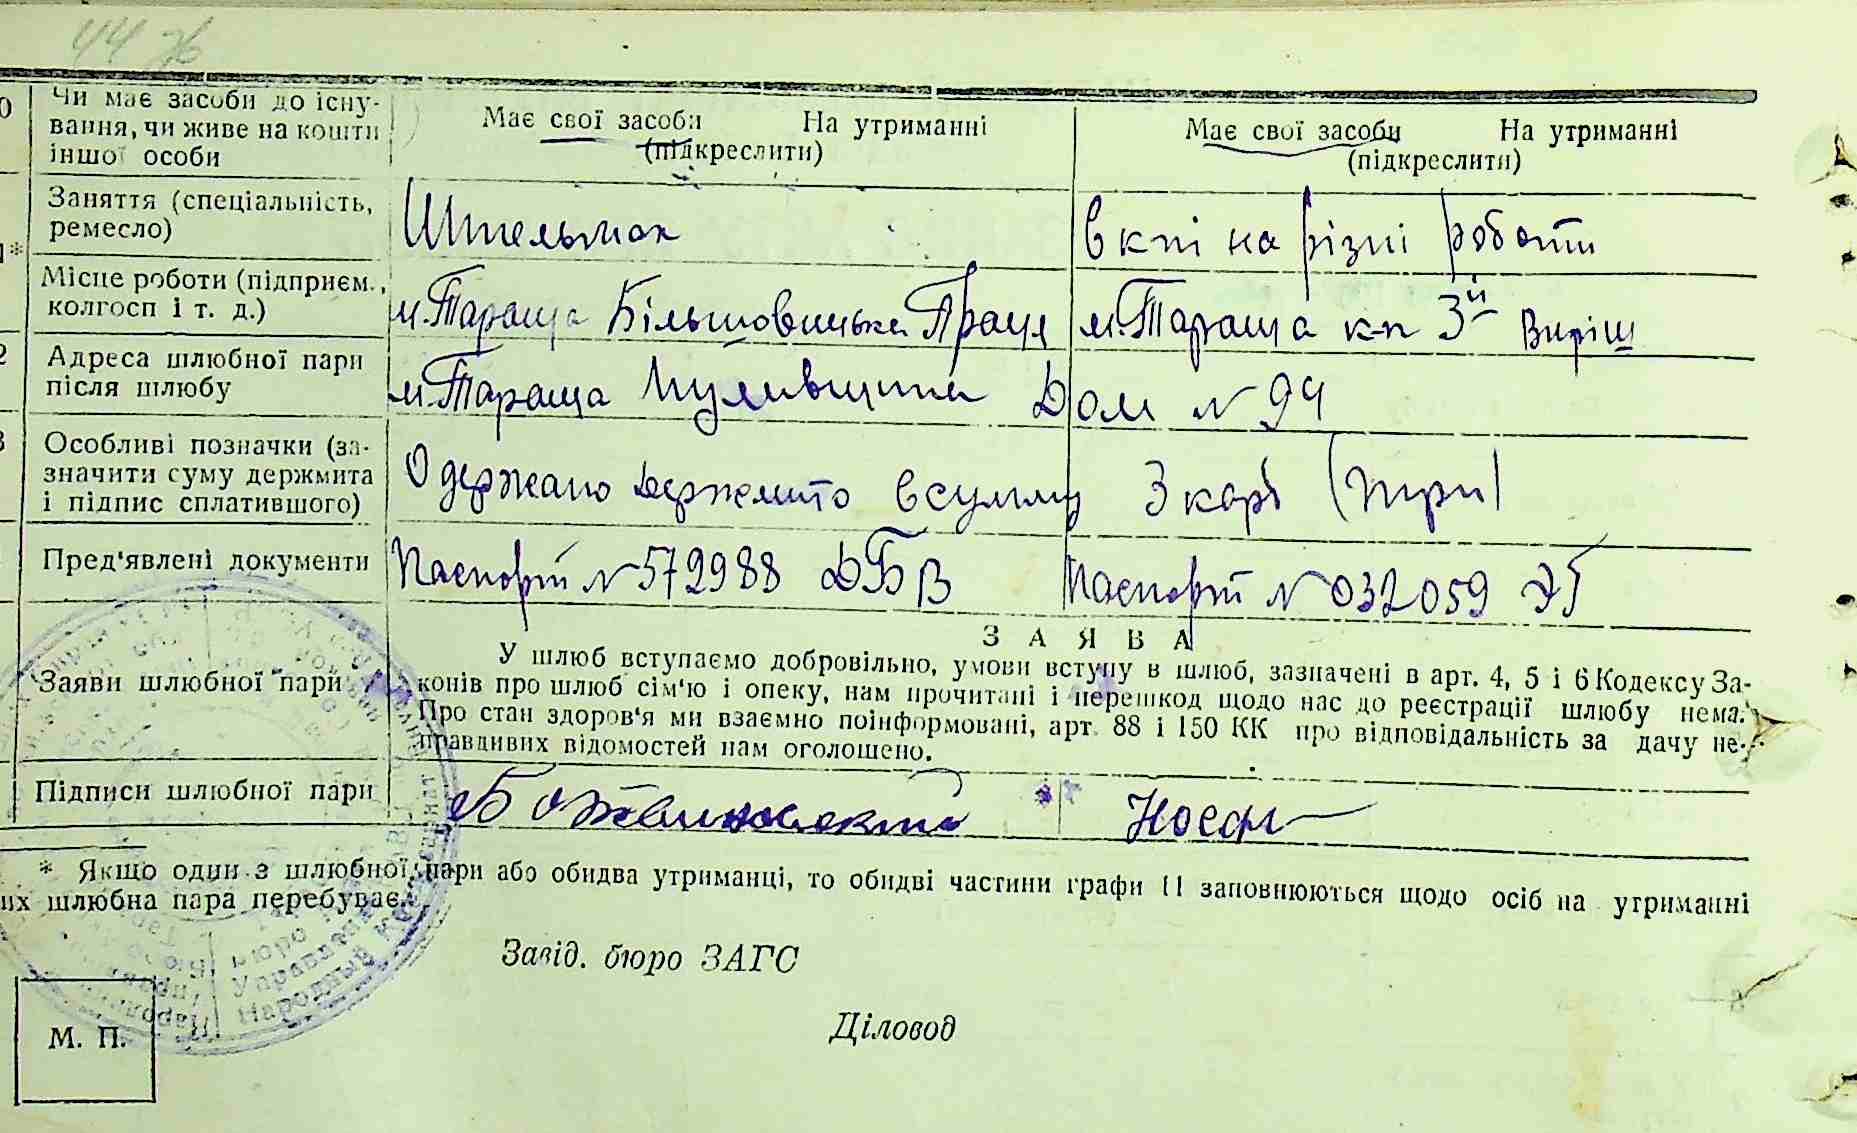 44 76
0 Чи має засоби до існу-
вання, чи живе на кошти
іншої особи
Має свої засоби На утриманні
(підкреслити)
Має свої засоби На утриманні
(підкреслити)
Заняття (спеціальність,
ремесло)
Штельмах
в кпі на різні роботи
1*
Місце роботи (підприєм.,
колгосп і т. д.)
м. Тараща Більшовицька Праця
м. Тараща кп 3й Виріш
2 Адреса шлюбної пари
після шлюбу
м. Тараща Дом № 94
3 Особливі позначки (за-
значити суму держмита
і підпис сплатившого)
Одержано держмито в сумму 3 карб (три)
Пред'явлені документи
Паспорт № 572988 ДБВ
Паспорт № 032059
Заяви шлюбної пари
ЗАЯВА
У шлюб вступаємо добровільно, умови вступу в шлюб, зазначені в арт. 4, 5 і 6 Кодексу За-
конів про шлюб сім'ю і опеку, нам прочитані і перешкод щодо нас до реєстрації шлюбу нема.
Про стан здоров'я ми взаємно поінформовані, арт. 88 і 150 КК про відповідальність за дачу не-
правдивих відомостей нам оголошено.
Підписи шлюбної пари
* Якщо один з шлюбної пари або обидва утриманці, то обидві частини графи 11 заповнюються щодо осіб на утриманні
их шлюбна пара перебуває.
Завід. бюро ЗАГС
Діловод
М. П.